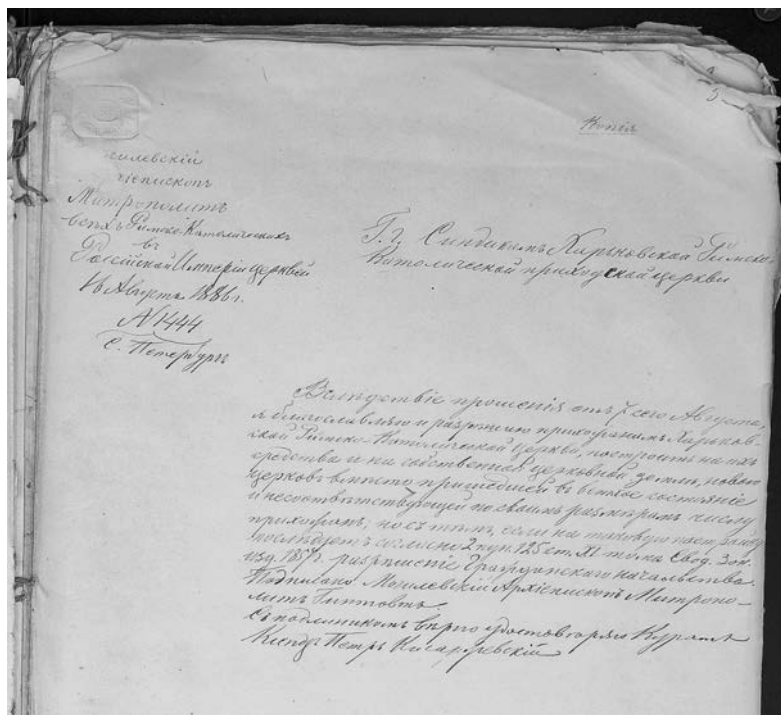 Копія
илевскій
хіепископъ
Митрополитъ
всѣхъ Римско-Католическихъ
въ
Россійской Имперіи церквей
16 Августа 1886 г.
№ 1444
С. Петербургъ
Г.г. Синдикамъ Харьковской Римско-
Католической приходской церкви
Вслѣдствіе прошенія отъ 7 сего Августа,
я благославляю и разрѣшаю прихожанамъ Харьков-
ской Римско-Католической Церкви, построить на ихъ
средства и на собственной церковной землѣ, новую
церковь вмѣсто пришедшей въ ветхое состояніе
и несоотвѣтствующей по своимъ размѣрамъ числу
прихожанъ; но съ тѣмъ, если на таковую постройку
послѣдуетъ согласно 2 пун. 125 ст. XI тома Свод. Зак.
изд. 1857 г. разрѣшеніе Гражданскаго начальства.
Подписано Могилевскій Архіепископъ Митропо-
литъ Гинтовтъ.
Съ подлиникомъ вѣрно удостовѣряю Куратъ
Ксендзъ Петръ